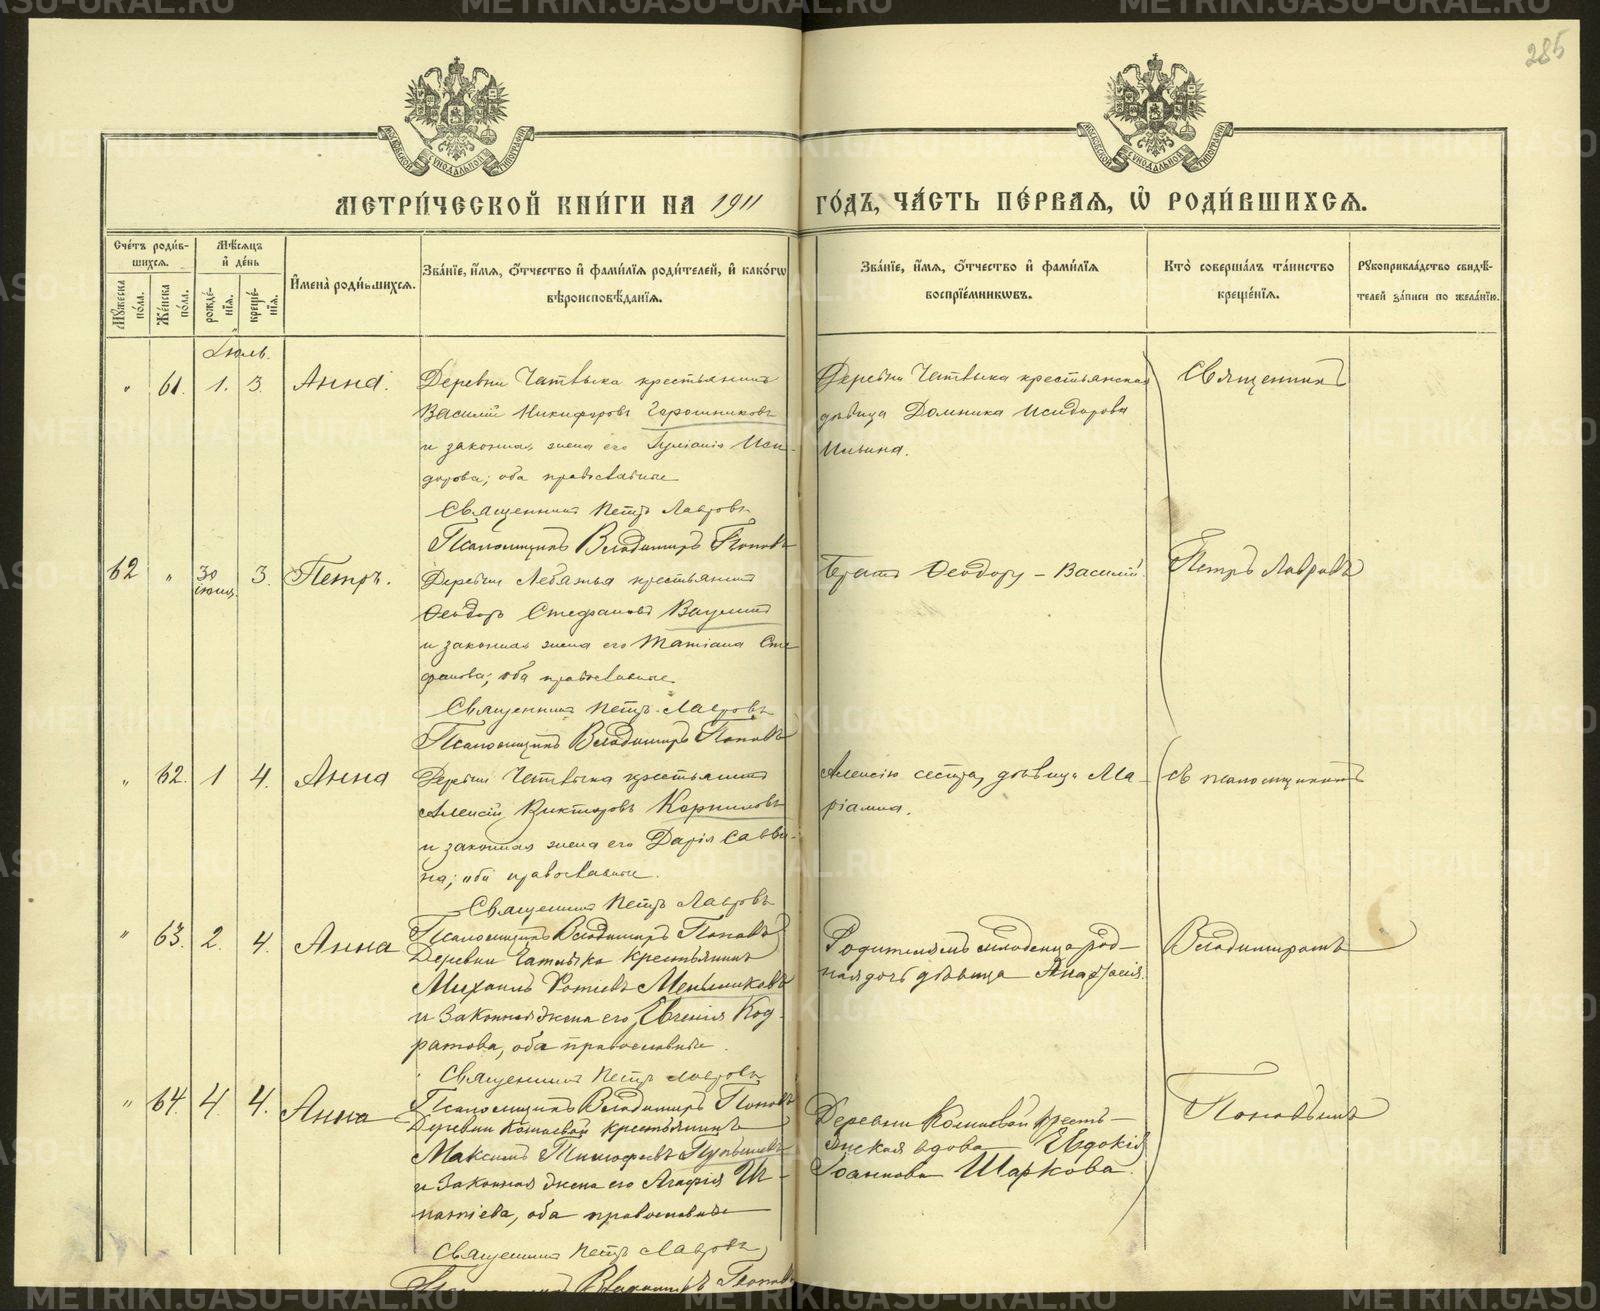 285
МОСКОВСКОЙ СУНОДАЛЬНОЙ ТИПОГРАФІИ
МОСКОВСКОЙ СУНОДАЛЬНОЙ ТИПОГРАФІИ
МЕТРИ́ЧЕСКОЙ КНИ́ГИ НА 1911 ГО́ДЪ, ЧА́СТЬ ПЕ́РВАЯ, Ѡ҆ РОДИ́ВШИХСЯ.
Сче́тъ роди́в-
шихся.
Мꙋ́жеска по́ла.
Же́нска по́ла.
Мѣ́сяцъ
и҆ де́нь
рожде́-
нїя.
креще́-
нїя.
И҆мена̀ роди́вшихся.
Зва́нїе, и҆́мя, ѻ҆́тчество и҆ фами́лїя роди́телей, и҆ како́гѡ
вѣроисповѣ́данїя.
Зва́нїе, и҆́мя, ѻ҆́тчество и҆ фами́лїя
воспрїе́мникѡвъ.
Кто̀ соверша́лъ та́инство
креще́нїя.
Рꙋкоприкла́дство свидѣ́-
телей за́писи по жела́нїю.
Іюль.
" 61. 1. 3. Анна.
Деревни Чатлыка крестьянинъ
Василій Никифоровъ
и законная жена его Иси-
дорова; оба православные
Священникъ Петръ Лавровъ
Псаломщикъ Владимиръ Поповъ
Деревни Чатлыка крестьянская
дѣвица Домника Исидорова
Ильина.
Священникъ
62 " 30 3. Петръ.
Деревни Лебяжья крестьянинъ
Ѳеодоръ Стефановъ Ваулинъ
и законная жена его Татіана Сте
фанова; оба православные
Священникъ Петръ Лавровъ
Псаломщикъ Владимиръ Поповъ
Братъ Ѳеодору – Василій
Петръ Лавровъ
" 62. 1 4. Анна
Деревни Чатлыка крестьянинъ
Алексій Викторовъ Корниловъ
и законная жена его Дарія Савви-
на; оба православные.
Священникъ Петръ Лавровъ
Псаломщикъ Владимиръ Поповъ
Алексію сестра, дѣвица Ма-
ріамна.
съ псаломщикомъ
" 63. 2. 4. Анна
Деревни Чатлыка Крестьянинъ
Михаилъ Фотіевъ Меньшиковъ
и Законная жена его Евгенія Код-
ратова, оба православные.
Священникъ Петръ Лавровъ
Псаломщикъ Владимиръ Поповъ
Родителямъ младенца род-
ная дочь дѣвица Анастасія.
Владимиромъ
" 64. 4. 4. Анна
Деревни Кошаевой крестьянинъ
Максимъ Тимофеевъ
и Законная жена его Агафія Иг-
натіева, оба православные
Священникъ Петръ Лавровъ
Псаломщикъ Владимиръ Поповъ
Деревни Кошаевой Кресть-
янская вдова Евдокія
Іоаннова Шаркова.
Поповымъ
METRIKI.GASO-URAL.RU